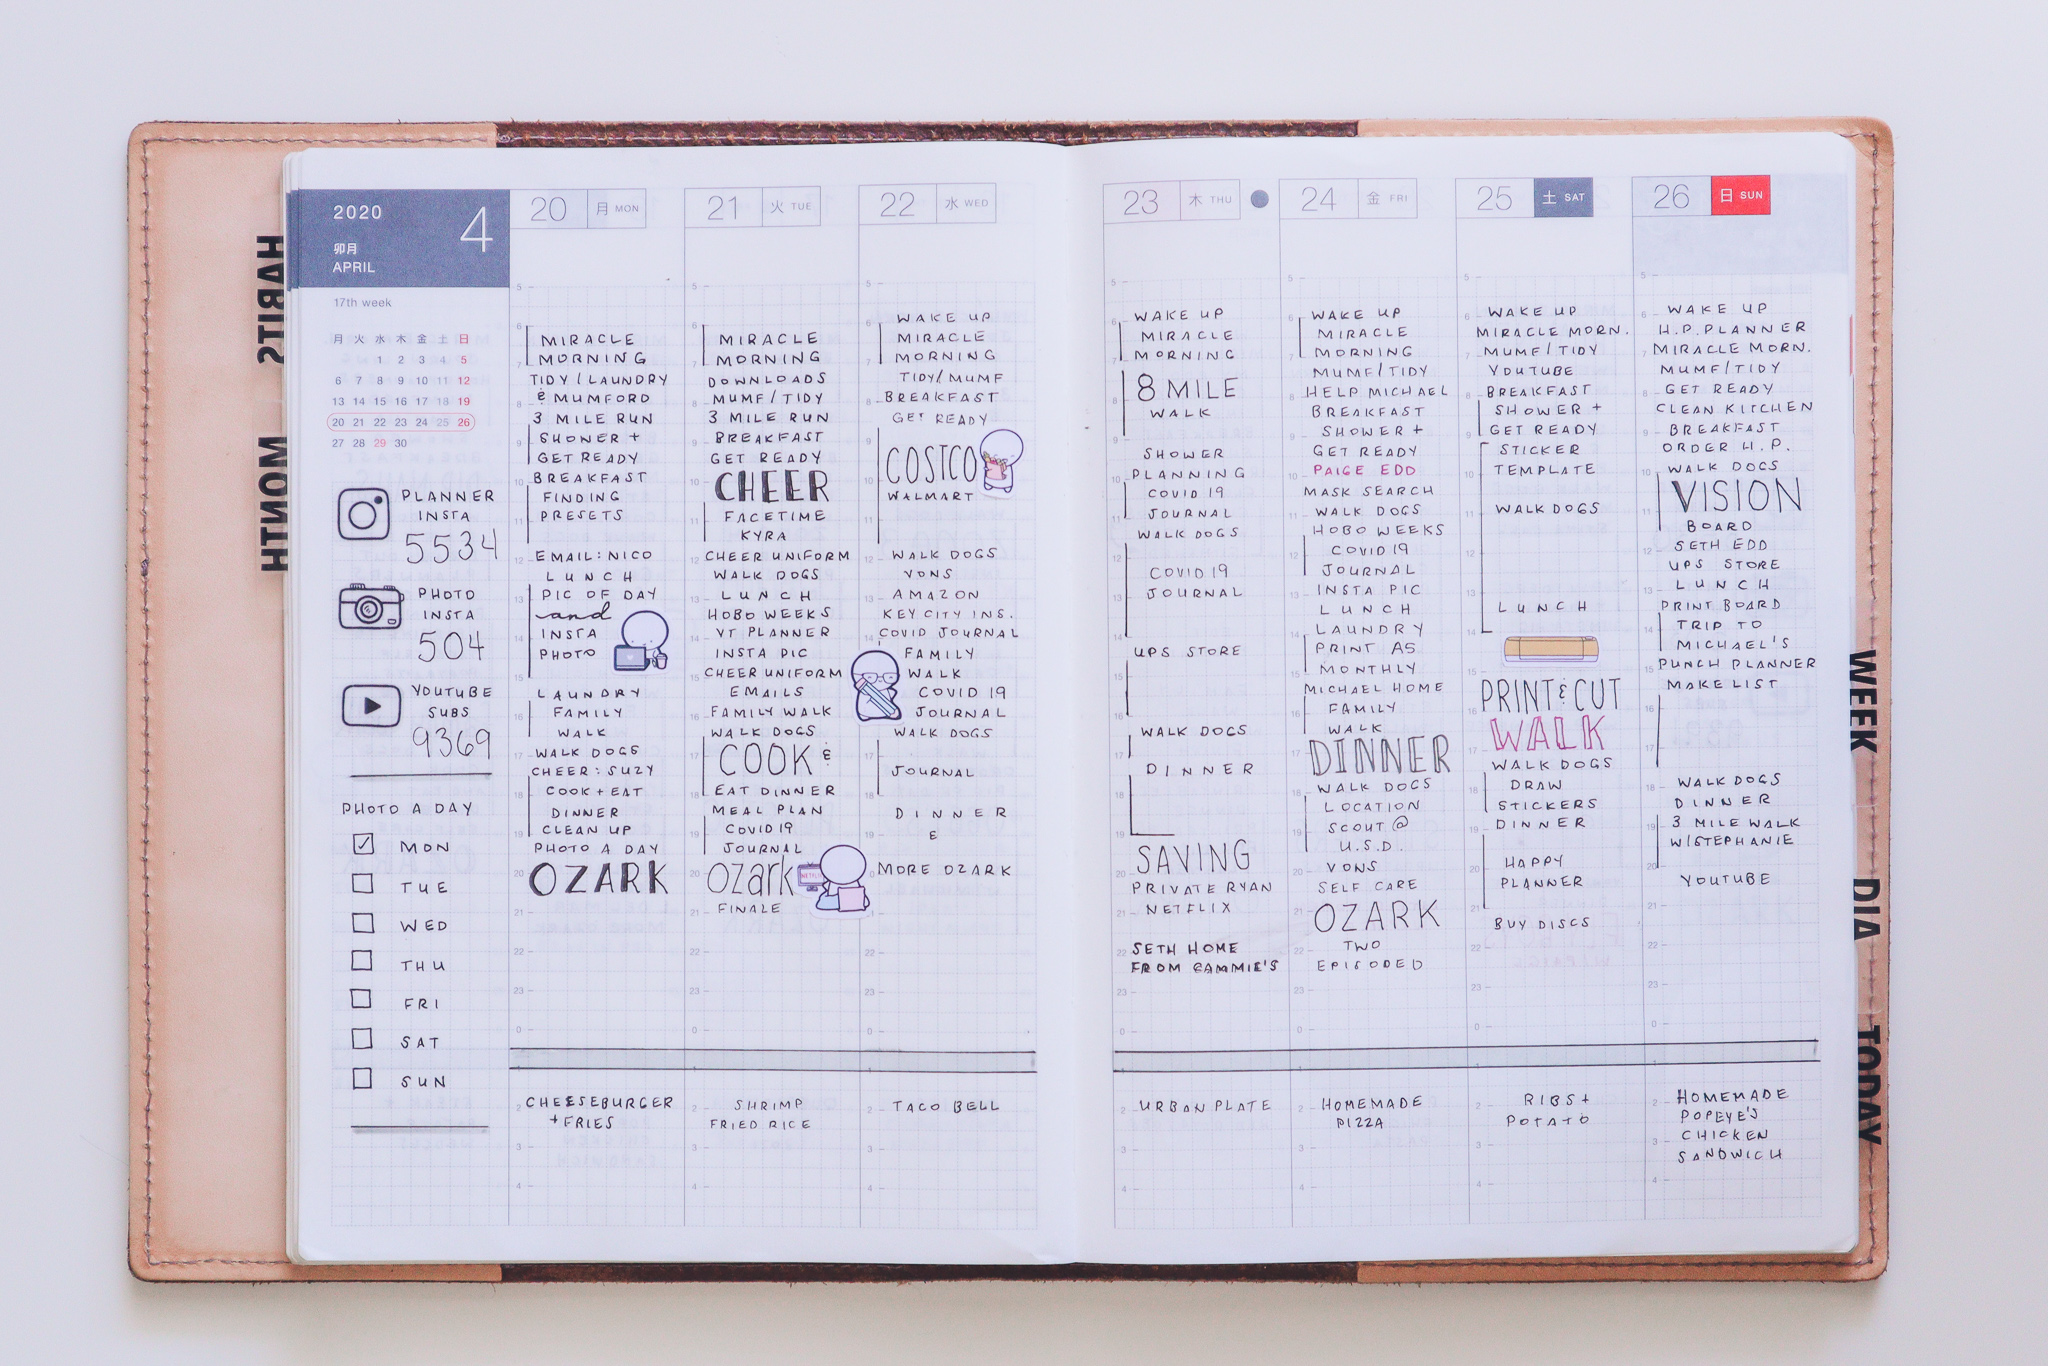 2020
4
卯月
APRIL
17th week
月 火 水 木 金 土 日
1 2 3 4 5
6 7 8 9 10 11 12
13 14 15 16 17 18 19
20 21 22 23 24 25 26
27 28 29 30
PLANNER
INSTA
5534
PHOTO
INSTA
504
YOUTUBE
SUBS
9369
PHOTO A DAY
MON
TUE
WED
THU
FRI
SAT
SUN
20 月 MON
MIRACLE
MORNING
TIDY/LAUNDRY
& MUMFORD
3 MILE RUN
SHOWER +
GET READY
BREAKFAST
FINDING
PRESETS
EMAIL: NICO
LUNCH
PIC OF DAY
and
INSTA
PHOTO
LAUNDRY
FAMILY
WALK
WALK DOGS
CHEER: SUZY
COOK + EAT
DINNER
CLEAN UP
PHOTO A DAY
OZARK
CHEESEBURGER
+ FRIES
21 火 TUE
MIRACLE
MORNING
DOWNLOADS
MUMF/TIDY
3 MILE RUN
BREAKFAST
GET READY
CHEER
FACETIME
KYRA
CHEER UNIFORM
WALK DOGS
LUNCH
HOBO WEEKS
YT PLANNER
INSTA PIC
CHEER UNIFORM
EMAILS
FAMILY WALK
WALK DOGS
COOK &
EAT DINNER
MEAL PLAN
COVID 19
JOURNAL
ozark
NETFLIX
FINALE
SHRIMP
FRIED RICE
22 水 WED
WAKE UP
MIRACLE
MORNING
TIDY/MUMF
BREAKFAST
GET READY
COSTCO
WALMART
WALK DOGS
VONS
AMAZON
KEY CITY INS.
COVID JOURNAL
FAMILY
WALK
COVID 19
JOURNAL
WALK DOGS
JOURNAL
DINNER
&
MORE OZARK
TACO BELL
23 木 THU
WAKE UP
MIRACLE
MORNING
8 MILE
WALK
SHOWER
PLANNING
COVID 19
JOURNAL
WALK DOGS
COVID 19
JOURNAL
UPS STORE
WALK DOGS
DINNER
SAVING
PRIVATE RYAN
NETFLIX
SETH HOME
FROM GAMMIE'S
URBAN PLATE
24 金 FRI
WAKE UP
MIRACLE
MORNING
MUMF/TIDY
HELP MICHAEL
BREAKFAST
SHOWER +
GET READY
PAIGE EDD
MASK SEARCH
WALK DOGS
HOBO WEEKS
COVID 19
JOURNAL
INSTA PIC
LUNCH
LAUNDRY
PRINT A5
MONTHLY
MICHAEL HOME
FAMILY
WALK
DINNER
WALK DOGS
LOCATION
SCOUT @
U.S.D.
VONS
SELF CARE
OZARK
TWO
EPISODED
HOMEMADE
PIZZA
25 土 SAT
WAKE UP
MIRACLE MORN.
MUMF/TIDY
YOUTUBE
BREAKFAST
SHOWER +
GET READY
STICKER
TEMPLATE
WALK DOGS
LUNCH
PRINT & CUT
WALK
WALK DOGS
DRAW
STICKERS
DINNER
HAPPY
PLANNER
BUY DISCS
RIBS +
POTATO
26 日 SUN
WAKE UP
H.P. PLANNER
MIRACLE MORN.
MUMF/TIDY
GET READY
CLEAN KITCHEN
BREAKFAST
ORDER H.P.
WALK DOGS
VISION
BOARD
SETH EDD
UPS STORE
LUNCH
PRINT BOARD
TRIP TO
MICHAEL'S
PUNCH PLANNER
MAKE LIST
WALK DOGS
DINNER
3 MILE WALK
W/STEPHANIE
YOUTUBE
HOMEMADE
POPEYE'S
CHICKEN
SANDWICH
HABITS
MONTH
WEEK
DIA
TODAY